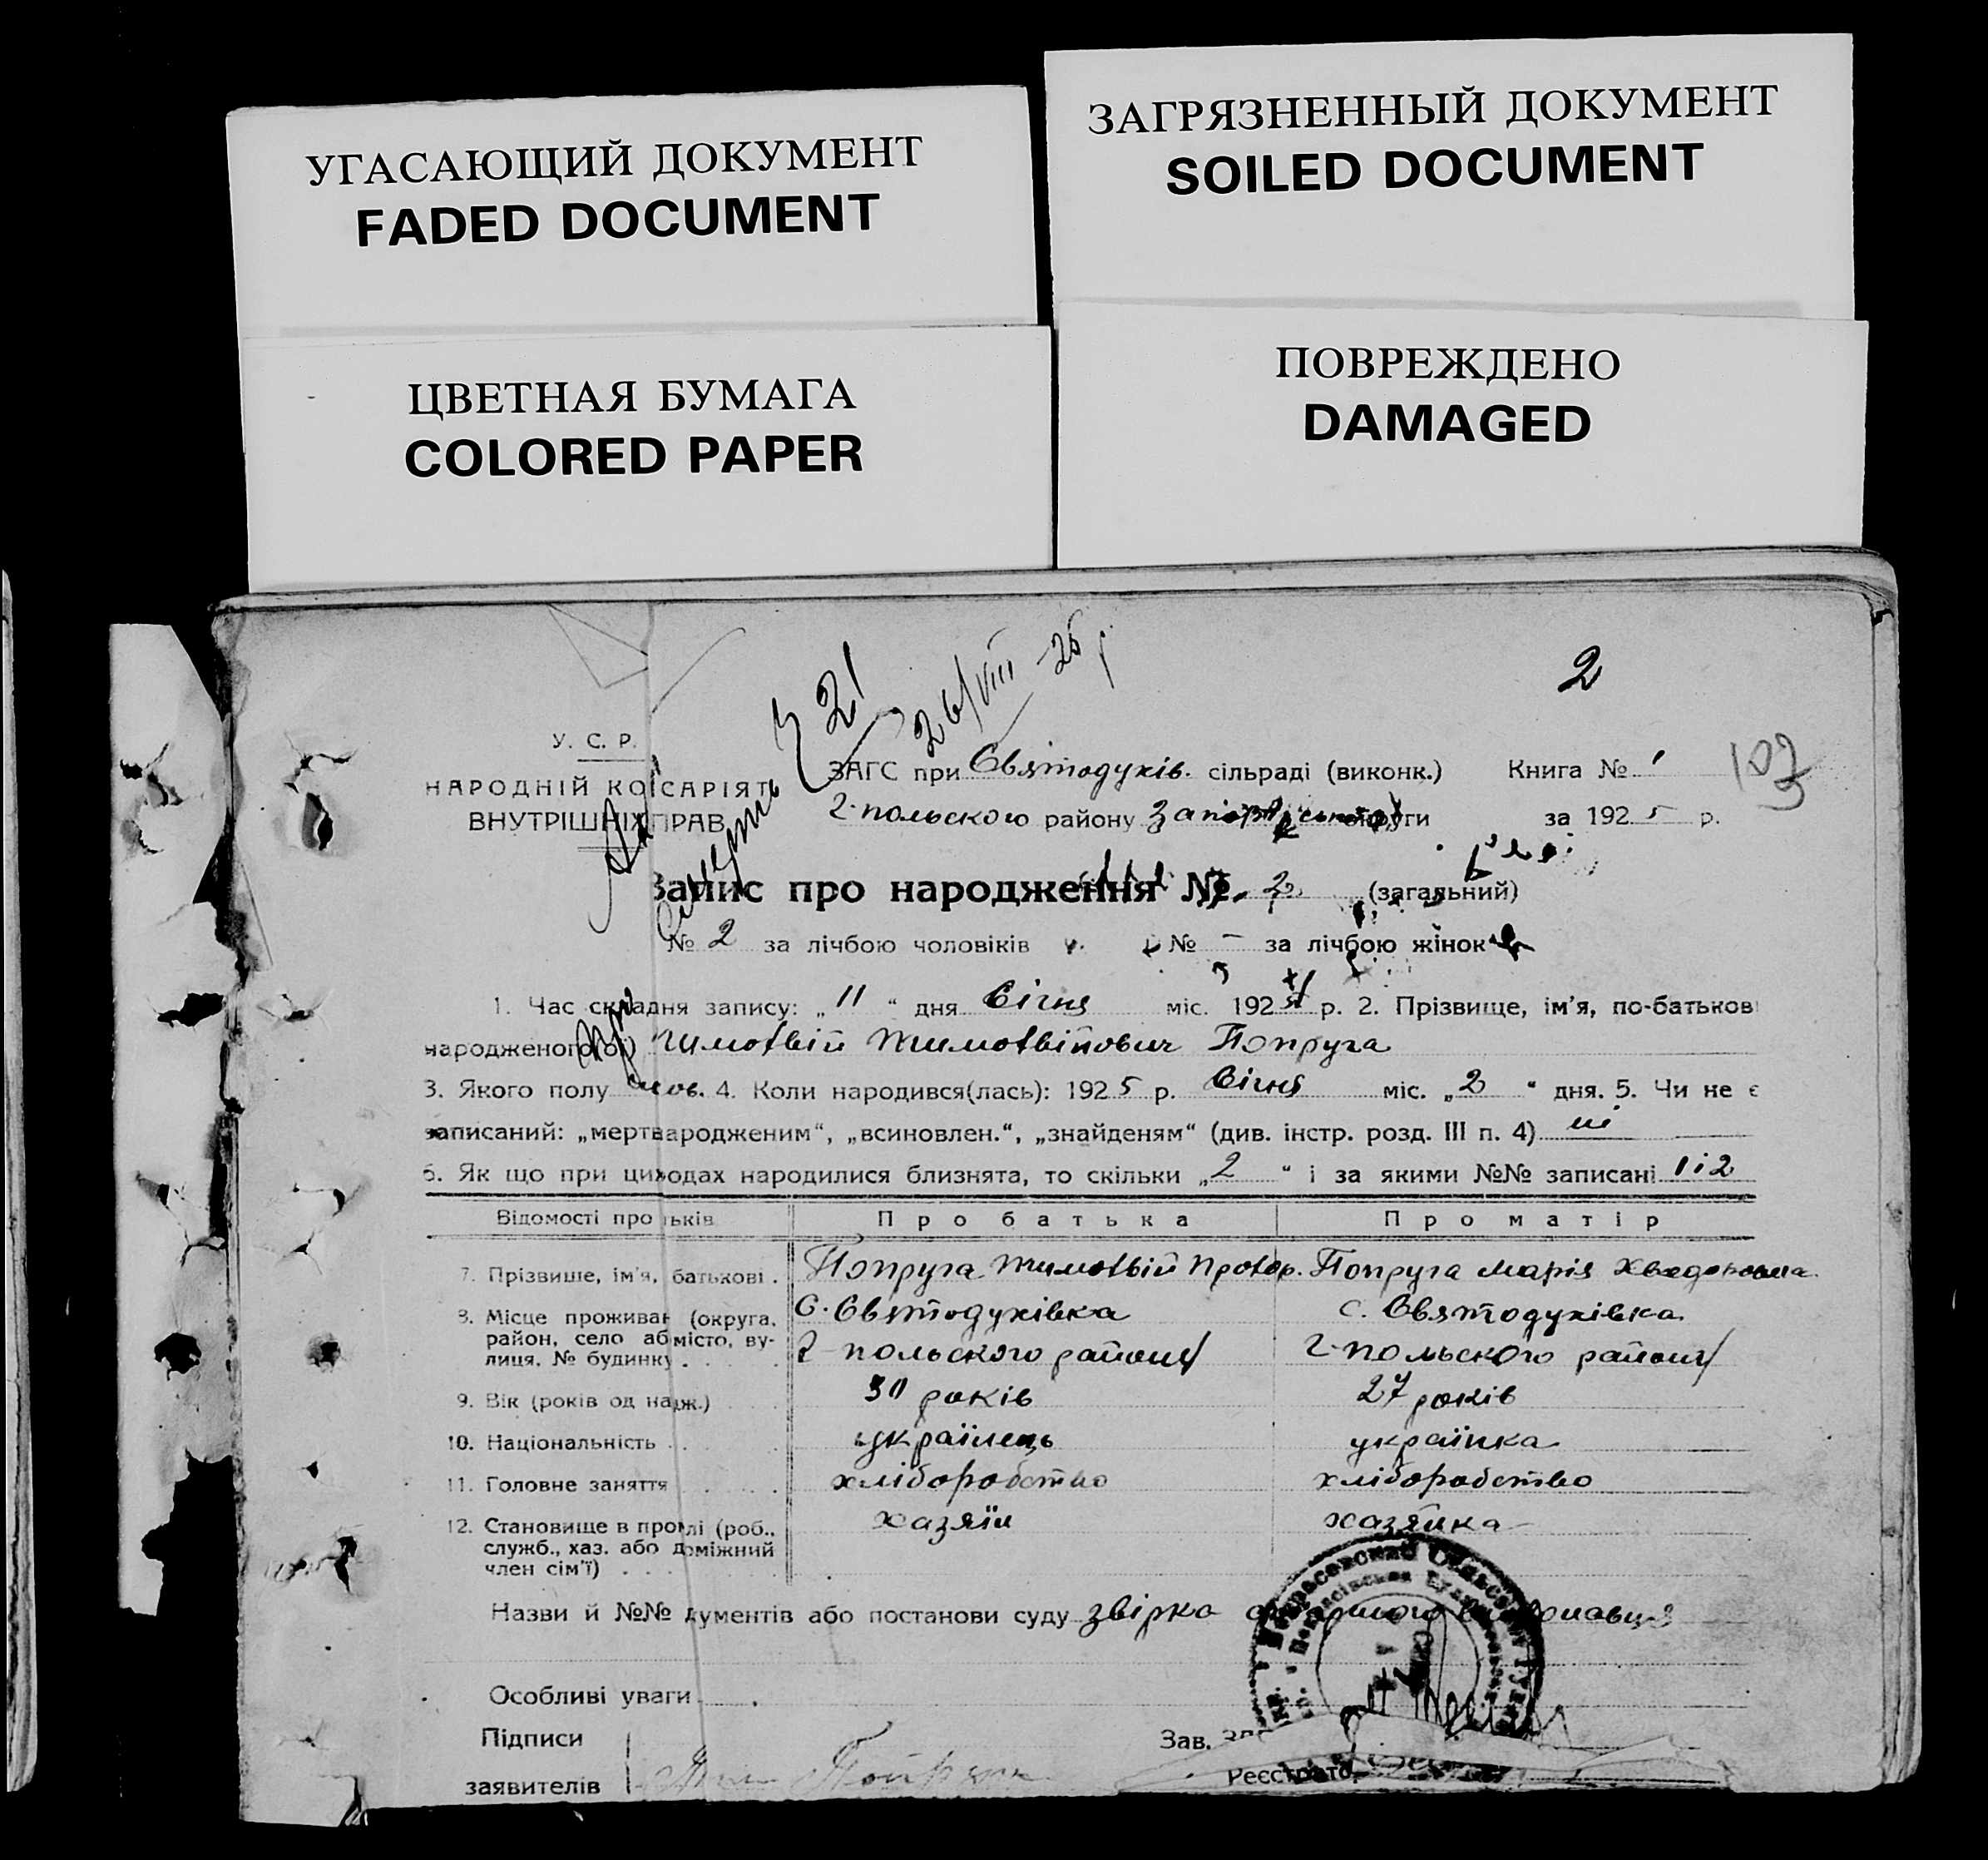 УГАСАЮЩИЙ ДОКУМЕНТ
FADED DOCUMENT
ЗАГРЯЗНЕННЫЙ ДОКУМЕНТ
SOILED DOCUMENT
ЦВЕТНАЯ БУМАГА
COLORED PAPER
ПОВРЕЖДЕНО
DAMAGED
2
21
26/VIII-25 р
103
У. С. Р.
НАРОДНІЙ КО САРІЯТ
ВНУТРІШНІХ ПРАВ
ЗАГС при Святодухів. сільраді (виконк.) Книга № 1
2-польского району округи за 1925 р.
Запис про народження № 2 (загальний)
№ 2 за лічбою чоловіків № - за лічбою жінок
1. Час складня запису: „11“ дня Січня міс. 1925 р. 2. Прізвище, ім'я, по-батьков
народженого(ої) Тимотвій Тимотвійович Попруга
3. Якого полу чол. 4. Коли народився(лась): 1925 р. Січня міс. „2“ дня. 5. Чи не є
записаний: „мертвародженим“, „всиновлен.“, „знайденям“ (див. інстр. розд. III п. 4) ні
6. Як що при ци одах народилися близнята, то скільки „2“ і за якими №№ записані 1 і 2
Відомості про ьків Про батька Про матір
7. Прізвише, ім'я, батькові. Попруга Тимотвій Протор. Попруга Марія
8. Місце проживан (округа, район, село аб місто, вулиця, № будинку. С. Святодухівка с. Святодухівка
2-польского району 2-польского району
9. Вік (років од на дж.) 30 років 27 років
10. Національність українець українка
11. Головне заняття хліборобство хліборобство
12. Становище в про лі (роб., служб., хаз. або д міжний член сім'ї) хазяїн хазяйка
Назви й №№ кументів або постанови суду звірка
Особливі уваги
Підписи
заявителів
Зав.
Реєстрато